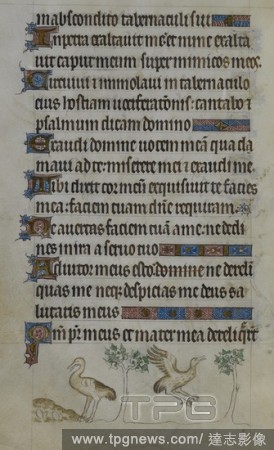 in abscondito tabernaculi sui
In petra exaltavit me et nunc exalta
vit caput meum super inimicos meos
Circuivi et immolavi in tabernaculo
eius hostiam vociferationis cantabo et
psalmum dicam domino
Exaudi domine vocem meam qua cla
mavi ad te miserere mei et exaudi me
Tibi dixit cor meum exquisivit te facies
mea faciem tuam dne requiram
Ne avertas faciem tuam a me ne decli
nes in ira a servo tuo
Adiutor meus esto domine ne dereli
quas me neque despicias me deus sa
lutaris meus
Qm pr meus et mater mea dereliqrut
TPG
www.tpgnews.com/達志影像